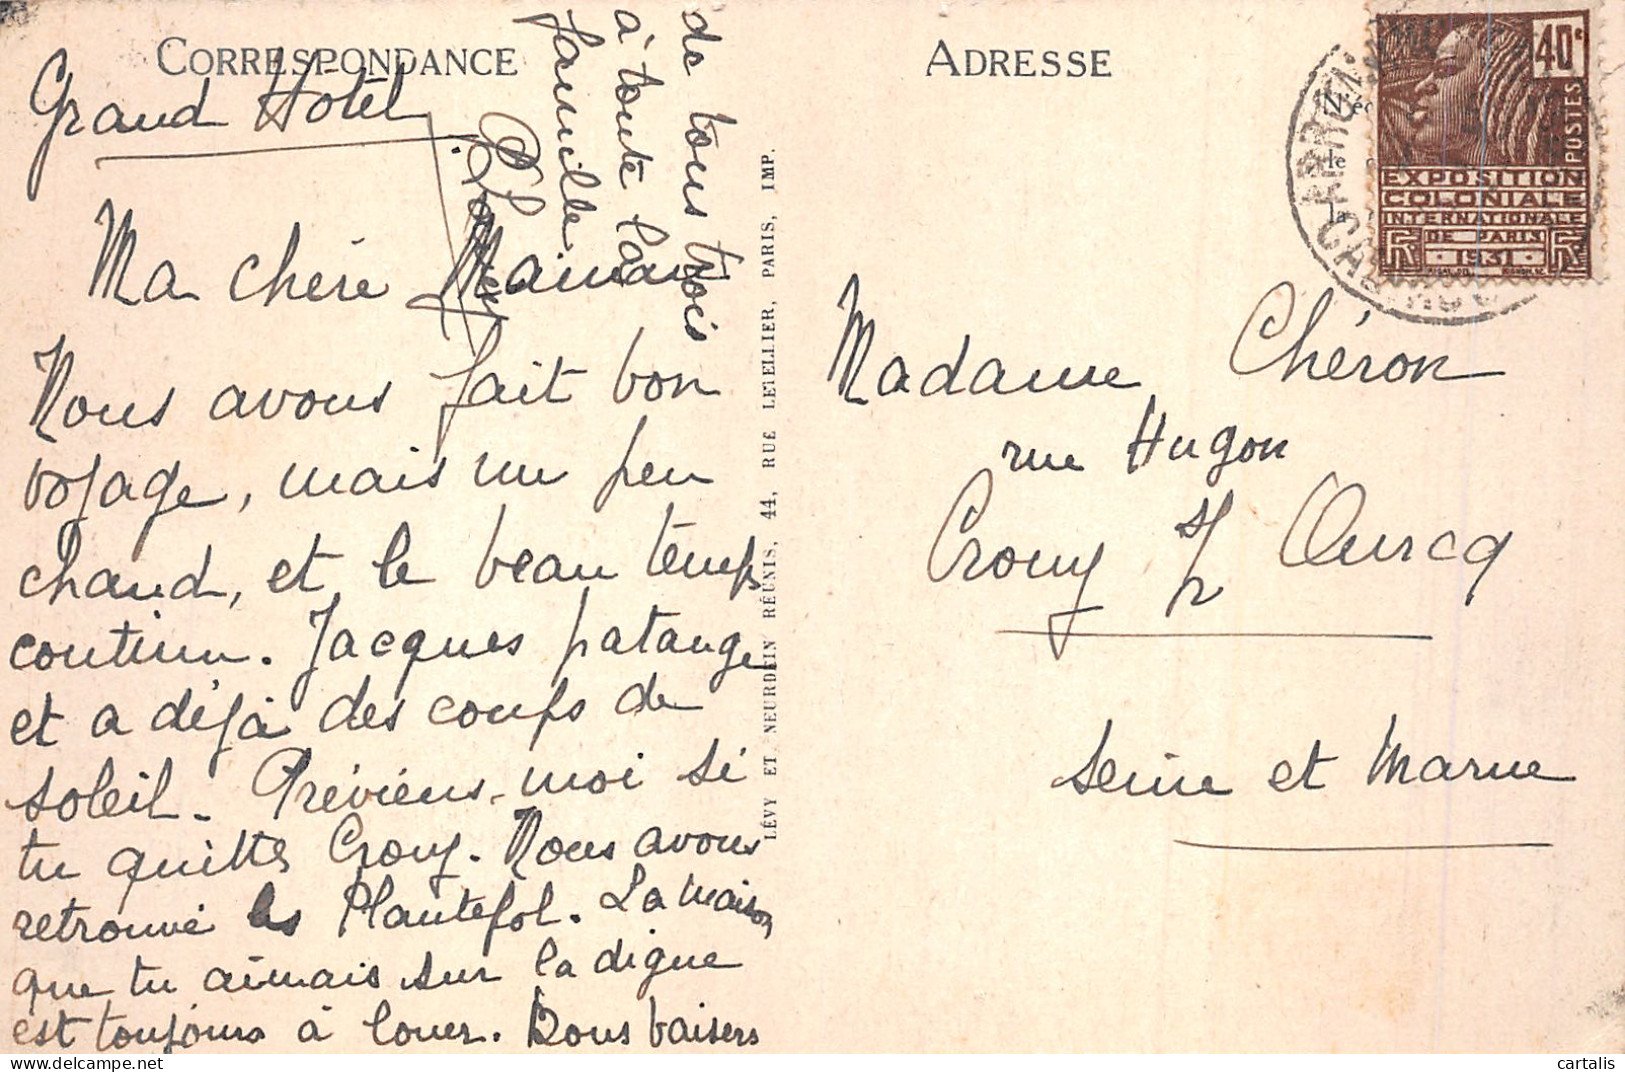 CORRESPONDANCE
Grand Hotel
Ma chère Maman
Nous avons fait bon
voyage, mais un peu
chaud, et le beau temps
continu. Jacques patauge
et a déjà des coups de
soleil. Préviens-moi si
tu quittes Crouy. Nous avons
retrouvé les Plantefol. La maison
que tu aimais sur la digue
est toujours à louer. Bons baisers
de tous trois
à toute la
famille
LÉVY ET NEURDEIN RÉUNIS, 44, RUE LETELLIER, PARIS, IMP.
ADRESSE
40c
POSTES
EXPOSITION
COLONIALE
INTERNATIONALE
DE PARIS
1931
Madame Chéron
rue Hugon
Crouy s/ Ourcq
Seine et Marne
cartalis